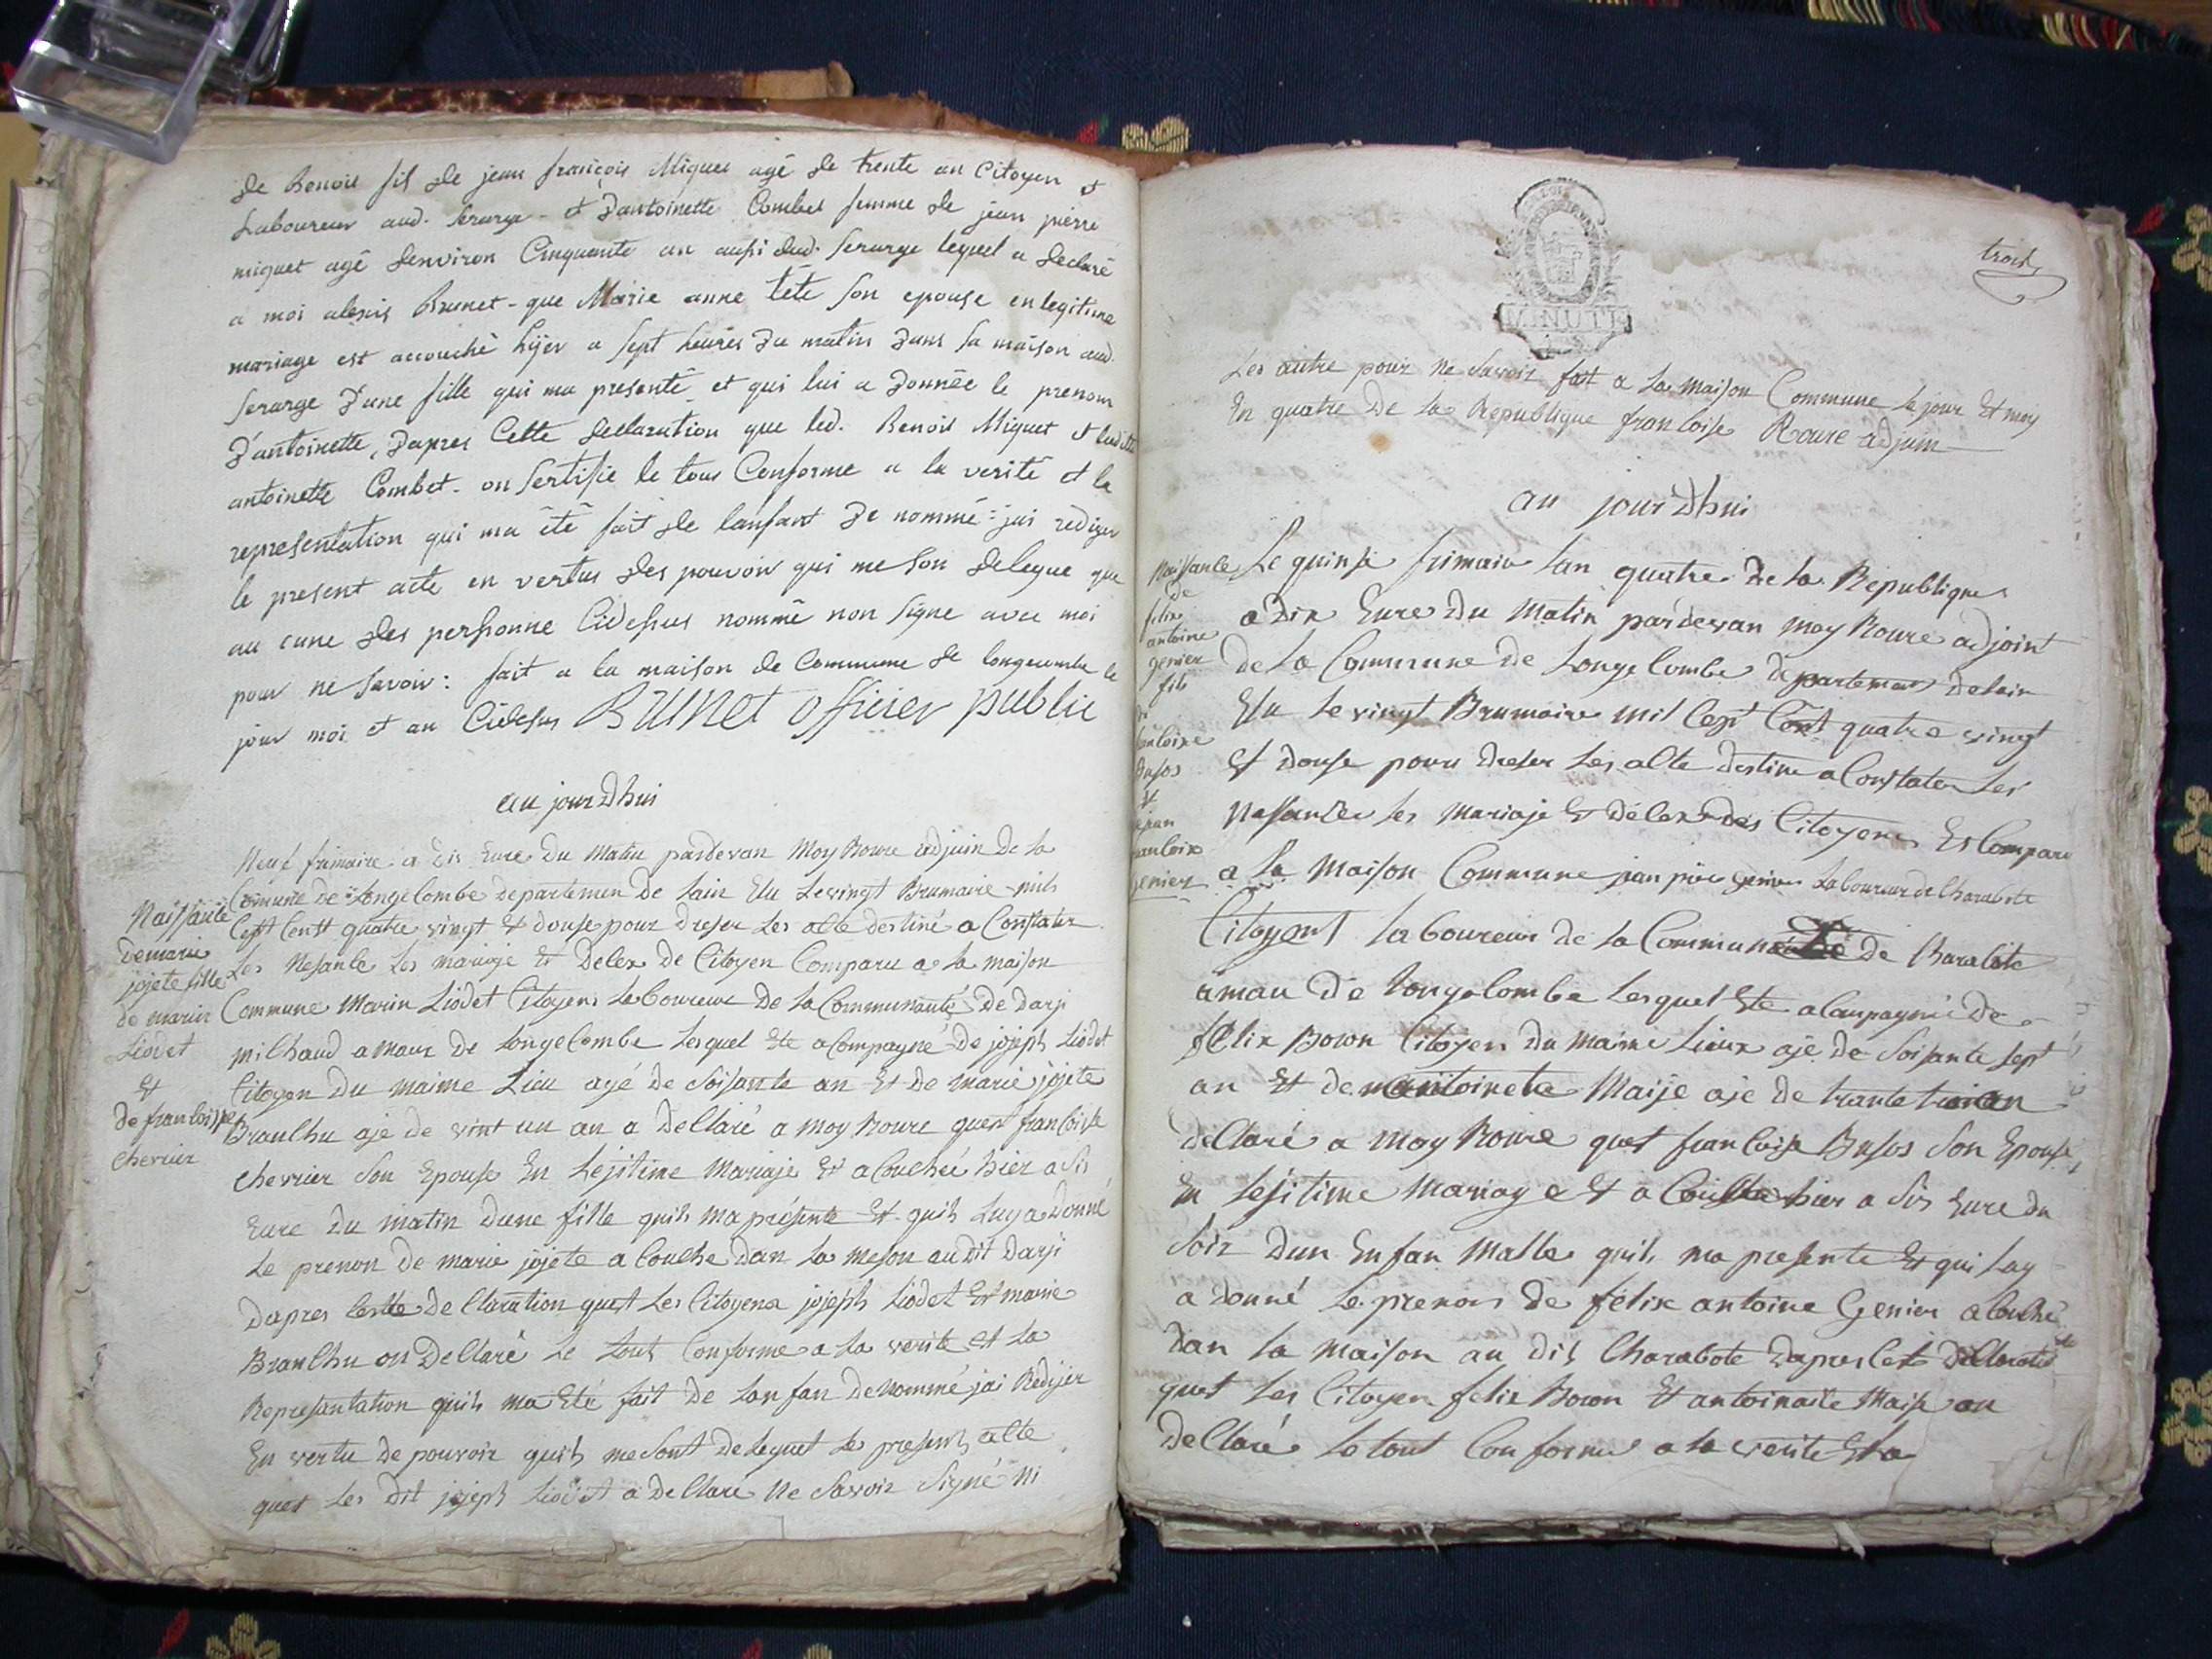 de Benois fils de jean francois Miguet agé de trente an Citoyen et
Laboureur aud. serarge - et d'antoinette Combet femme de jean pierre
miguet agé denviron Cinquante an aussi dud. serarge lequel a declaré
a moi alexis Brunet - que Marie anne tête son epouse en legitime
mariage est accouché hÿer a sept heures du matin dans sa maison aud.
serarge d'une fille qui ma presenté et qui lui a donnée le prenom
d'antoinette, dapres Cette declaration que led. Benois Miguet et
antoinette Combet - on sertifie le tous Conforme a la verité et la
representation qui ma êtê fait de lanfant de nommé : jai rediger
le present acte en vertus des pouvoir qui me son delegue que
au cune des personne Cidessus nommê non signe avec moi
pour ne savoir : fait a la maison de Commune de longecombe le
jour moi et an Cidesus Brunet officier public
au jourdhui
Neuf frimaire a dis Eure du Matin pardevan Moy Roure adjuin De la
Comune de Longecombe departemen de Lain Elu Le vingt Brumaire mil
Cept Cent quatre vingt et douse pour dreser Les acte destiné a Constater
Les Nesance Les mariaje Et Deces De Citoyen Comparu a la maison
Commune Marin Liodet Citoyen Laboureur De la Communauté De Darji
milhaud amau De Longecombe Lesquel Ete acompagné De joseph Liodet
Citoyen Du maime Lieu agé de soisante an Et De marie jojete
Brauchu aje de vint un an a Declaré a moy Roure quet francoise
chevrier son Epouse En Lejitime Mariaje Et acouchée hier a sis
Eure du matin dune fille quil ma présente Et quil Luy a Donné
Le prenon De marie jojete a Couche dan La meson au dit Darji
Dapres Cette Declaration quet Les Citoyen josephs Liodet Et marie
Brauchu on Declaré Le tout Conforme a la verité et La
Representation quil ma Eté fait de Lanfan De nommé jai Redijer
En vertu de pouvoir quil me sont Deleguet Le present acte
quet Les Dit joseph Liodet a Declaré Ne Savoir Signé ni
Naissance
de marie
jojete fille
de marin
Liodet
Et
de francoise
chevrier
trois
MINUTE
Les autre pour Ne Savoir fait a La maison Commune Le jour Et moy
En quatre De La Republique francoise Roure adjuin
au jourdhui
Le quinse frimaire Lan quatre De La Republique
a Dix Eure Du Matin pardevan moy Roure adjoint
de La Commune de Longecombe departeman delain
Elu Le vingt Brumaire mil Cept Cent quatre vingt
Et douse pour dreser Les acte destine a Constater Les
Nesance Les Mariaje Et Déces des Citoyens Es Comparu
a La Maison Commune jean Genier Laboureur de Charabote
Citoyent Laboureur de La Communauté de
amau De Longecombe Lesquel Ete acompagné De
félix Boron Citoyen Du maime Lieux ajé de soisante sept
an Et de antoinete Maije aje de trante
declaré a moy Roure quet francoise Busos Son Epouse
En Lejitime Mariage Et a hier a Sis Eure du
Soir Dun Enfan Malle quil ma presente Et qui Luy
a donné Le prenom de félix antoine Genier acouché
dan La maison au dit Charabote dapres Cete
quet Les Citoyen félix Boron Et antoinaite Maije on
declaré Le tout Conforme a La verite Et La
Naissance
de
felix
antoine
genier
fils
de
Busos
et
jean
genier